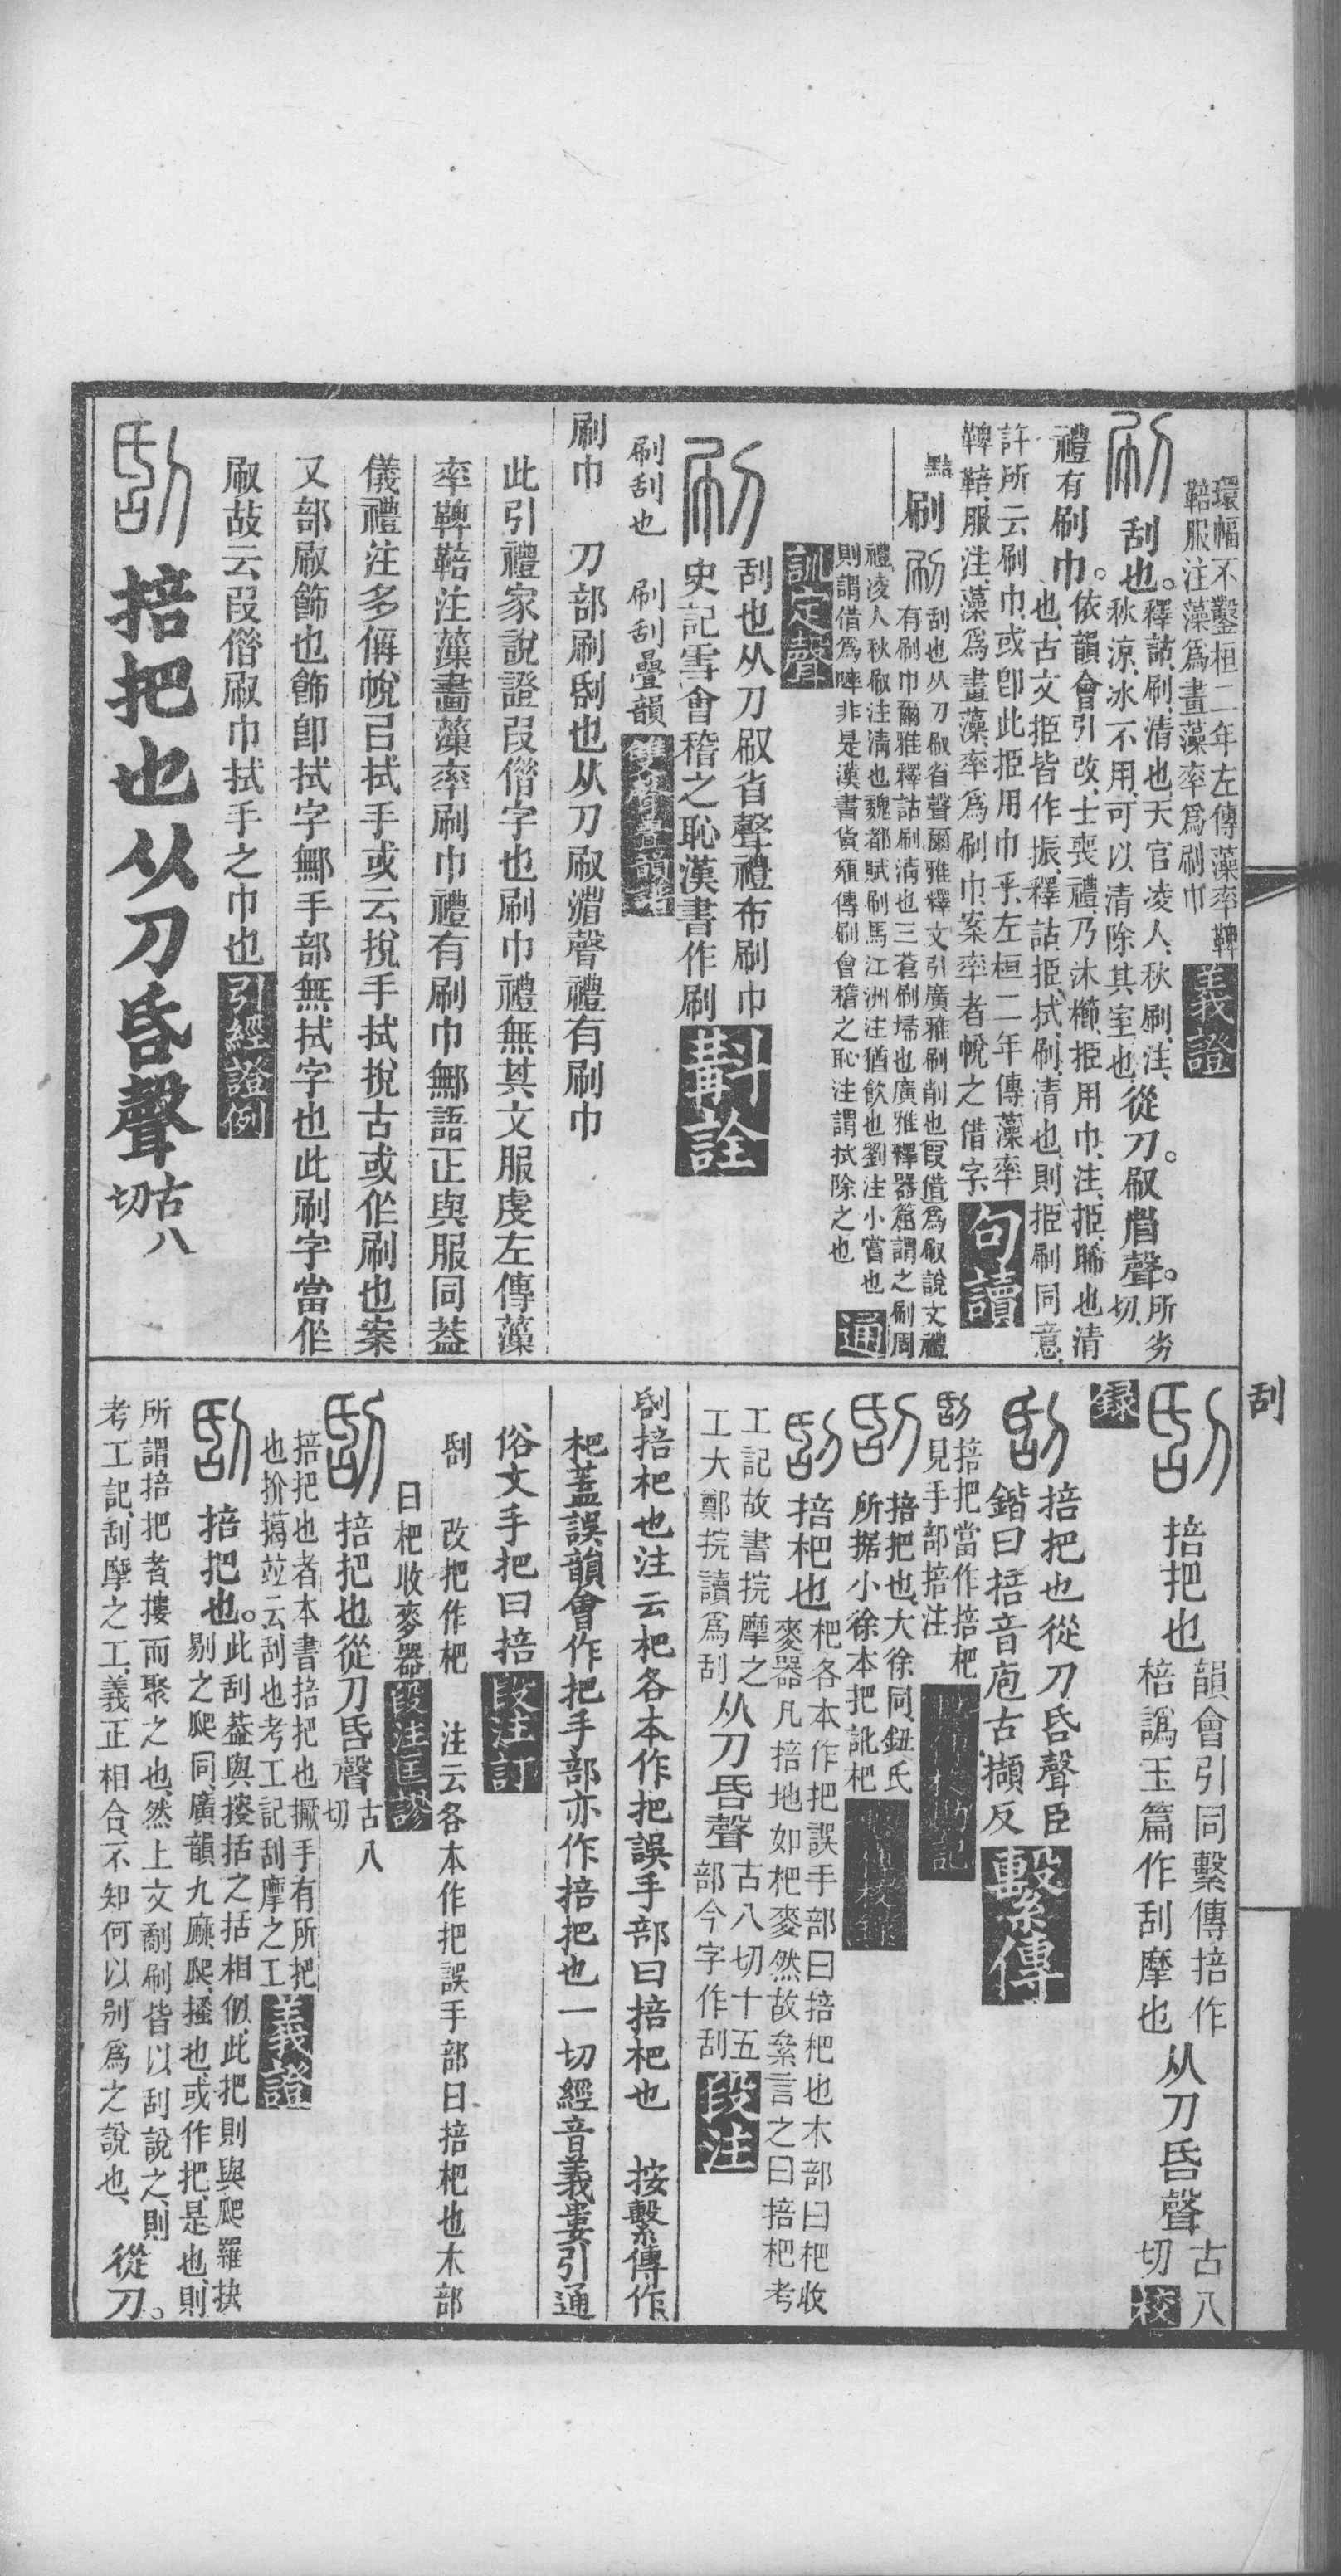 環幅不鑿桓二年左傳藻率鞞
鞛服注藻爲畫藻率爲刷巾
義證
刷
刮也。
釋詁刷清也天官凌人秋刷注
秋涼冰不用可以清除其室也
從刀。㕞省聲。
所劣
切
禮有刷巾。
依韻會引改士喪禮乃沐櫛挋用巾注挋晞也清
也古文挋皆作振釋詁挋拭刷清也則挋刷同意
許所云刷巾或卽此挋用巾乎左桓二年傳藻率
鞞鞛服注藻爲畫藻率爲刷巾案率者帨之借字
句讀
點
刷
刷
刮也从刀㕞省聲爾雅釋文引廣雅刷削也叚借爲㕞說文禮
有刷巾爾雅釋詁刷清也三蒼刷埽也廣雅釋器箒謂之刷周
禮凌人秋㕞注清也魏都賦刷馬江洲注猶飲也劉注小嘗也
則謂借爲啐非是漢書貨殖傳刷會稽之恥注謂拭除之也
通
訓定聲
刷
刮也从刀㕞省聲禮布刷巾
史記雪會稽之恥漢書作刷
斠詮
刷刮也 刷刮疊韻
雙聲疊韻譜
刷巾 刀部刷刮也从刀㕞省聲禮有刷巾
此引禮家說證叚借字也刷巾禮無其文服虔左傳藻
率鞞鞛注藻畫藻率刷巾禮有刷巾鄦語正與服同葢
儀禮注多偁帨㠯拭手或云挩手拭挩古或作刷也案
又部㕞飾也飾卽拭字鄦手部無拭字也此刷字當作
㕞故云叚借㕞巾拭手之巾也
引經證例
刮
掊把也从刀𠯑聲
古八
切
刮
刮
掊把也
韻會引同繫傳掊作
棓譌玉篇作刮摩也
从刀𠯑聲
古八
切
校
錄
刮
掊把也從刀𠯑聲臣
鍇曰掊音庖古擷反
繫傳
刮
掊把當作掊杷
見手部掊注
刮
掊把也大徐同鈕氏
所據小徐本把訛杷
刮
掊杷也
杷各本作把誤手部曰掊杷也木部曰杷收
麥器凡掊地如杷麥然故絫言之曰掊杷考
工記故書捖摩之
工大鄭捖讀爲刮
从刀𠯑聲
古八切十五
部今字作刮
段注
刮掊杷也注云杷各本作把誤手部曰掊杷也 按繫傳作
杷蓋誤韻會作把手部亦作掊把也一切經音義婁引通
俗文手把曰掊
段注訂
刮 改把作杷 注云各本作把誤手部曰掊杷也木部
曰杷收麥器
段注匡謬
刮
掊把也從刀𠯑聲
古八
切
掊把也者本書掊把也擮手有所把
也扴𢶍竝云刮也考工記刮摩之工
義證
刮
掊把也。
此刮葢與捘括之括相似此把則與爬羅抉
剔之爬同廣韻九麻爬搔也或作把是也則
所謂掊把者摟而聚之也然上文劀刷皆以刮說之則
考工記刮摩之工義正相合不知何以別爲之說也
從刀。